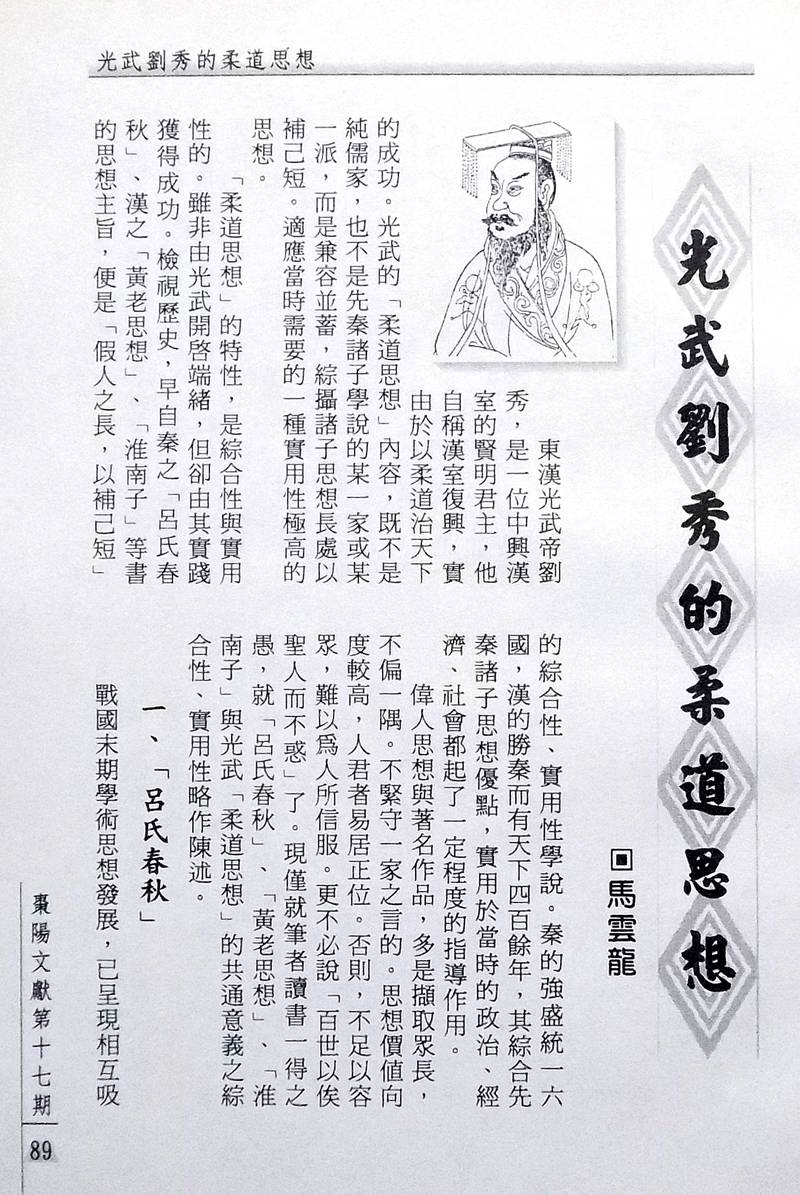 光武劉秀的柔道思想
光武劉秀的柔道思想
回馬雲龍
東漢光武帝劉
秀，是一位中興漢
室的賢明君主，他
自稱漢室復興，實
由於以柔道治天下
的成功。光武的「柔道思想」內容，既不是
純儒家，也不是先秦諸子學說的某一家或某
一派，而是兼容並蓄，綜攝諸子思想長處以
補己短。適應當時需要的一種實用性極高的
思想。
「柔道思想」的特性，是綜合性與實用
性的。雖非由光武開啓端緒，但卻由其實踐
獲得成功。檢視歷史，早自秦之「呂氏春
秋」、漢之「黃老思想」、「淮南子」等書
的思想主旨，便是「假人之長，以補己短」
的綜合性、實用性學說。秦的強盛統一六
國，漢的勝秦而有天下四百餘年，其綜合先
秦諸子思想優點，實用於當時的政治、經
濟、社會都起了一定程度的指導作用。
偉人思想與著名作品，多是擷取眾長，
不偏一隅。不緊守一家之言的。思想價值向
度較高，人君者易居正位。否則，不足以容
眾，難以爲人所信服。更不必說「百世以俟
聖人而不惑」了。現僅就筆者讀書一得之
愚，就「呂氏春秋」、「黃老思想」、「淮
南子」與光武「柔道思想」的共通意義之綜
合性、實用性略作陳述。
一、「呂氏春秋」
戰國末期學術思想發展，已呈現相互吸
棗陽文獻第十七期
89